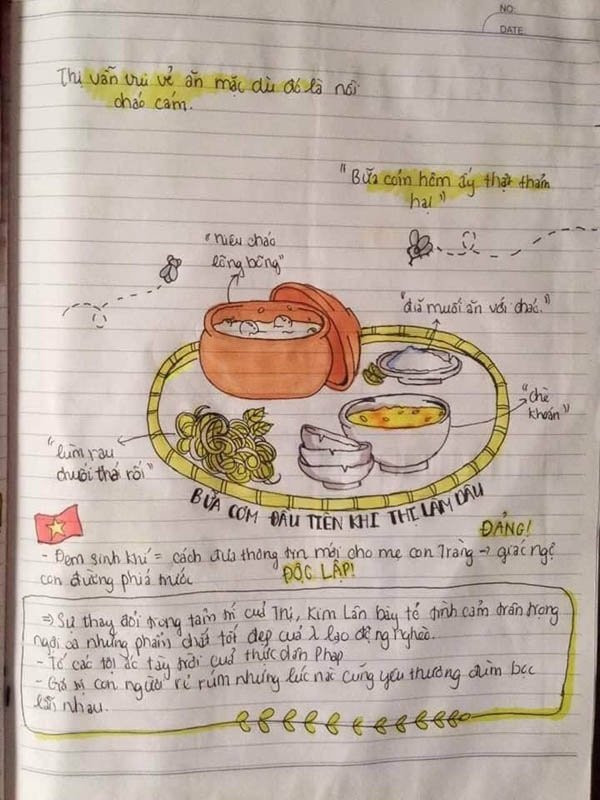 NO:
DATE
Thị vẫn vui vẻ ăn mặc dù đó là nồi
cháo cám.
"Bữa cơm hôm ấy thật thảm
hại"
"niêu cháo
lõng bõng"
"đĩa muối ăn với cháo."
"chè
khoán"
"lùm rau
chuối thái rối"
BỮA CƠM ĐẦU TIÊN KHI THỊ LÀM DÂU
ĐẢNG!
- Đem sinh khí = cách đưa thông tin mới cho mẹ con Tràng → giác ngộ
con đường phía trước
ĐỘC LẬP!
⇒ Sự thay đổi trong tâm trí của Thị, Kim Lân bày tỏ tình cảm trân trọng
ngợi ca những phẩm chất tốt đẹp của λ lao động nghèo.
- Tố các tội ác tày trời của thực dân Pháp
- Giá trị con người rẻ rúm nhưng lúc nào cũng yêu thương đùm bọc
lẫn nhau.